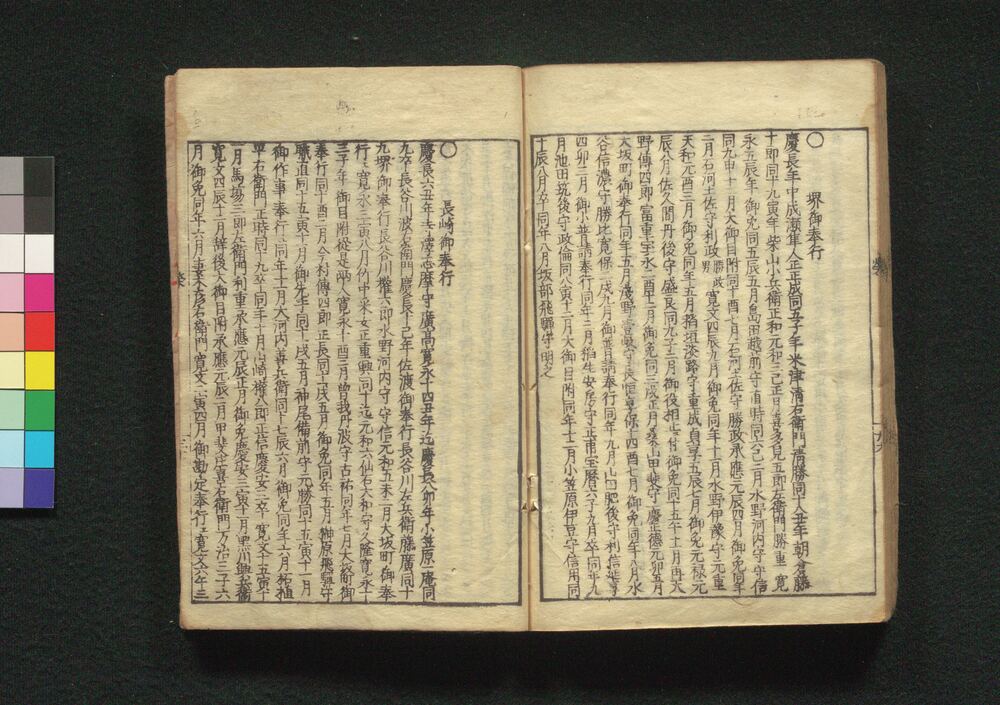 ○
堺御奉行
慶長年中成瀬隼人正正成同五子年米津清右衛門清勝同十八丑年朝倉藤
十郎同十九寅年柴山小兵衛正和元和三巳正月喜多見五郎左衛門勝重寛
永五辰年御免同五辰五月島田越前守直時同六巳二月水野河内守守信
同九申十二月大御目附同十酉七月石河土佐守勝政承應元辰四月御免同年
二月石河土佐守利政勝政男寛文四辰九月御免同年十二月水野伊豫守元重
天和元酉三月御免同年五月稲垣淡路守重成貞享五辰七月御免元禄元
辰八月佐久間丹後守盛良同九子二月御役相止 月御免同十五午十月再天
野傳四郎富重宝永二酉十二月御免同三戌正月桑山甲斐守一慶正徳元卯五月
大坂町御奉行同年五月浅野壱岐守長恒享保十四酉七月御免同年八月水
谷信濃守勝比寛保二戌九月御普請奉行同年九月山口肥後守利信延享
四卯二月御小普請奉行同年三月稲生安房守正甫宝暦六子九月卒同年九
月池田筑後守政倫同八寅十二月大御目附同年十二月小笠原伊豆守信用同
十辰八月卒同年八月坂部飛騨守明之
○
長崎御奉行
慶長六丑年寺澤志摩守廣高寛永十四丑年迄慶長八卯年小笠原一庵同
九卒長谷川波右衛門慶長十己年佐渡御奉行長谷川左兵衛藤廣同十
九堺御奉行長谷川權六郎水野河内守守信元和五未二月大坂町御奉
行寛永三寅八月竹中采女正重興同十迄元和六仙石大和守久隆寛永十
三子年御目附從是兩人寛永十酉二月曾我丹波守古祐同年七月大坂町御
奉行同十酉二月今村傳四郎正長同十一戌五月御免同年五月榊原飛騨守
職直同十五寅十一月御先手同十一戌五月神尾備前守元勝同十五寅十一月
御作事奉行同年十一月大河内善兵衛同十七辰六月御免同年六月柘植
平右衛門正時同十九卒同年十月山崎權八郎正信慶安三卒寛文十五寅十
一月馬場三郎左衛門利重承應元辰正月御免慶安三寅十一月黒川與兵衛
寛文四辰十二月辞後大御目附承應元辰三月甲斐庄喜右衛門万治三子六
月御免同年六月妻木彦右衛門寛文二寅四月御勘定奉行寛文六午三